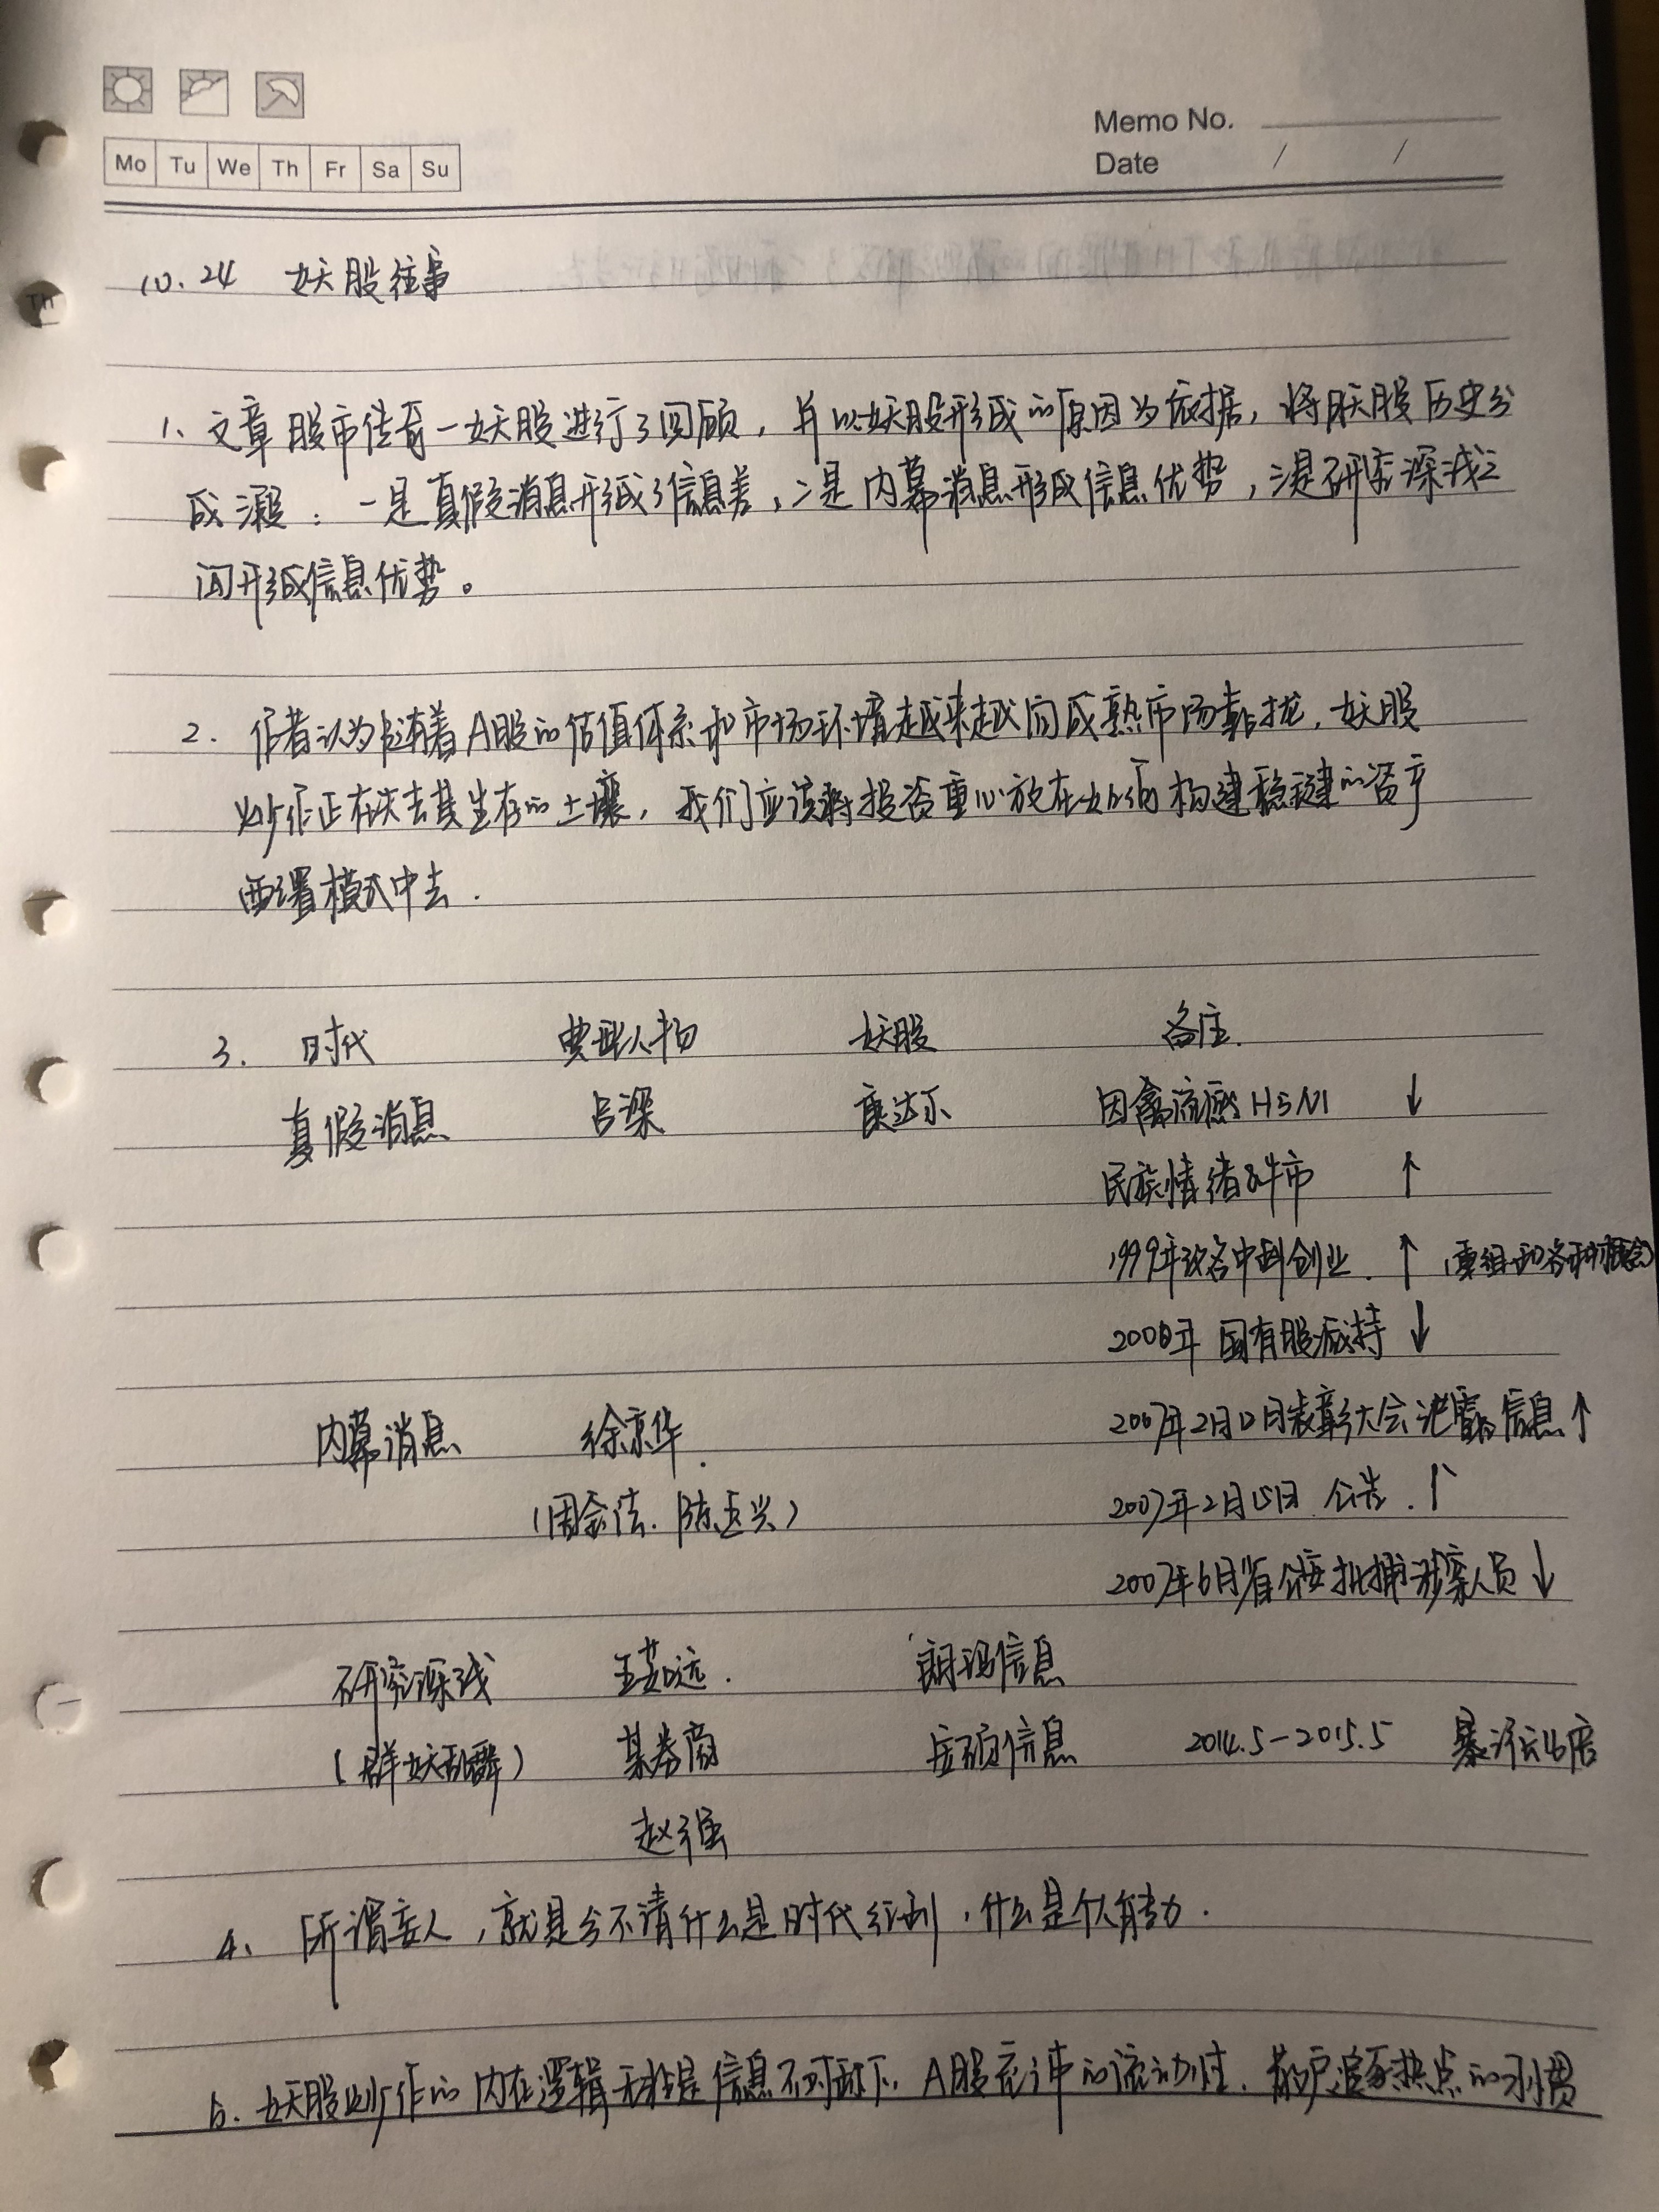 Memo No.
Mo Tu We Th Fr Sa Su
Date / /
10.24 妖股往事
1、文章 股市传奇一妖股进行了回顾，并以妖股形成的原因为依据，将妖股历史分
成 ：一是真假消息形成了信息差，二是内幕消息形成信息优势，三是研究深浅之
间形成信息优势。
2. 作者认为随着A股的估值体系和市场环境越来越向成熟市场靠拢，妖股
炒作正在失去其生存的土壤，我们应该将投资重心放在如何构建稳健的资产
配置模式中去.
3. 时代 典型人物 妖股 备注.
真假消息 吕梁 康达尔 因禽流感H5N1 ↓
民族情绪&牛市 ↑
1999年改名中科创业. ↑ (重组和各种概念)
2000年 国有股减持 ↓
内幕消息 徐京华. 2007年2月12日表彰大会泄露信息↑
(周金法. 陈 兴) 2007年2月15日 公告. ↑
2007年6月省公安批捕涉案人员↓
研究深浅 王茹远. 朗玛信息
(群妖乱舞) 某券商 安硕信息 2014.5-2015.5 暴涨 倍
赵强
4、所谓妄人，就是分不清什么是时代红利，什么是个人能力.
5. 妖股炒作的内在逻辑无非是信息不对称下. A股充沛的流动性. 散户追逐热点的习惯